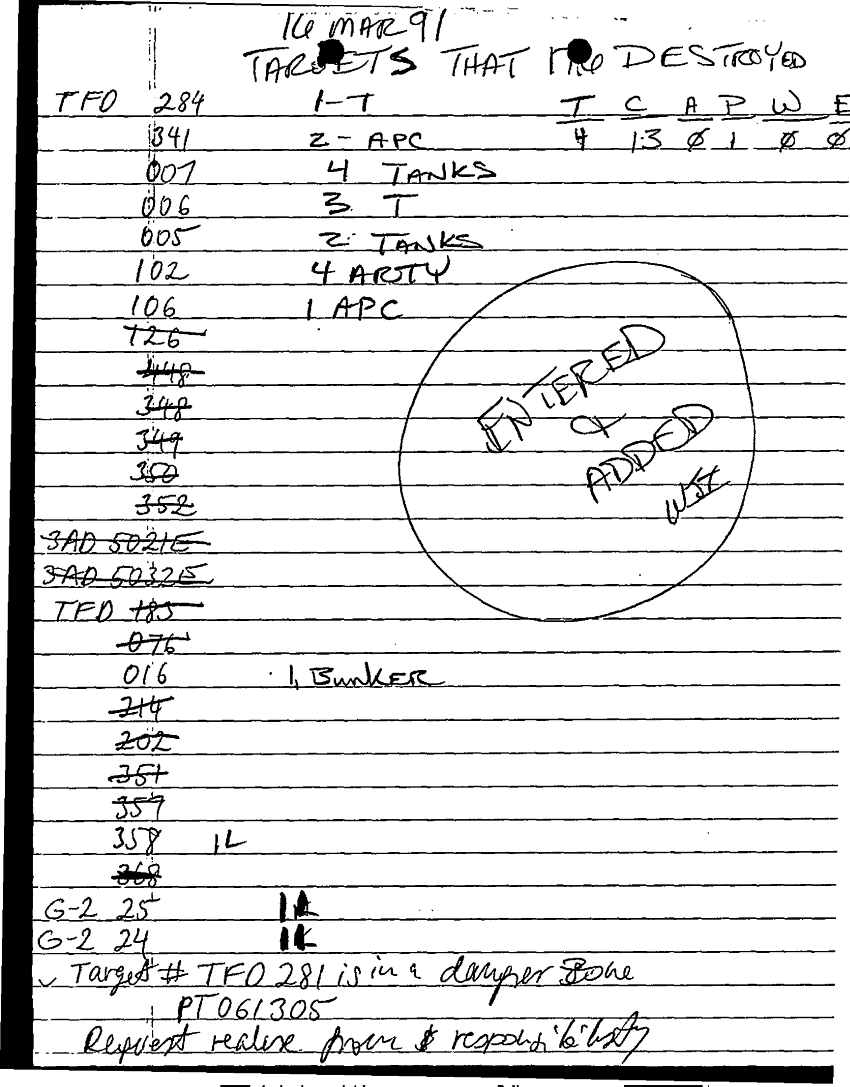 16 MAR 91
TARGETS THAT DESTROYED
TFD 284 1-T T C A P W E
341 2 - APC 4 13 Ø 1 Ø Ø
007 4 TANKS
006 3 T
005 2 TANKS
102 4 ARTY
106 1 APC
126
448
348
349
350
352
3AD 5021E
3AD 5032E
TFD 185
076
016 1, BUNKER
214
202
351
357
358 1L
368
G-2 25
G-2 24
Target # TFD 281 is in a danger Zone
PT061305
Request from responsibility
ENTERED
&
ADDED